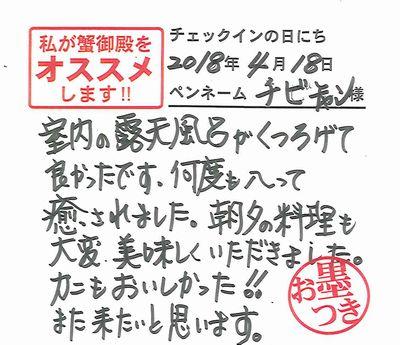 私が蟹御殿を
オススメ
します!!
チェックインの日にち
2018年 4月 18日
ペンネーム チビキャン様
室内の露天風呂がくつろげて
良かったです、何度も入って
癒されました。朝夕の料理も
大変美味しくいただきました。
カニもおいしかった!!
また来たいと思います。
お墨つき